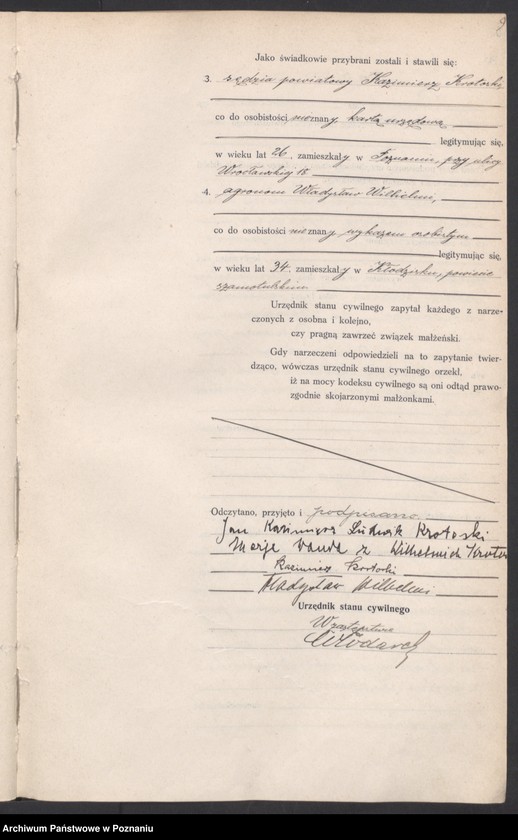 9
Jako świadkowie przybrani zostali i stawili się:
3. sędzia powiatowy Kazimierz Krotoski
co do osobistości nieznany kartą urzędową
legitymując się,
w wieku lat 26, zamieszkały w Poznaniu, przy ulicy
Wrocławskiej 15
4. agronom Władysław Wilhelmi,
co do osobistości nieznany wykazem osobistym
legitymując się,
w wieku lat 34, zamieszkały w powiecie
szamotulskim
Urzędnik stanu cywilnego zapytał każdego z narze-
czonych z osobna i kolejno,
czy pragną zawrzeć związek małżeński.
Gdy narzeczeni odpowiedzieli na to zapytanie twier-
dząco, wówczas urzędnik stanu cywilnego orzekł,
iż na mocy kodeksu cywilnego są oni odtąd prawo-
zgodnie skojarzonymi małżonkami.
Odczytano, przyjęto i podpisano.
Jan Kazimierz Ludwik Krotoski
Marja Wanda z Wilhelmich
Kazimierz Krotoski
Władysław Wilhelmi
Urzędnik stanu cywilnego
W zastępstwie
Archiwum Państwowe w Poznaniu